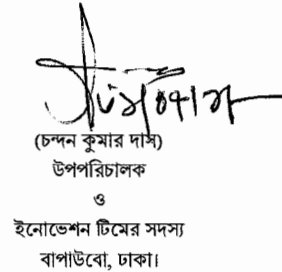 (চন্দন কুমার দাস)
উপপরিচালক
ও
ইনোভেশন টিমের সদস্য
বাপাউবো, ঢাকা।